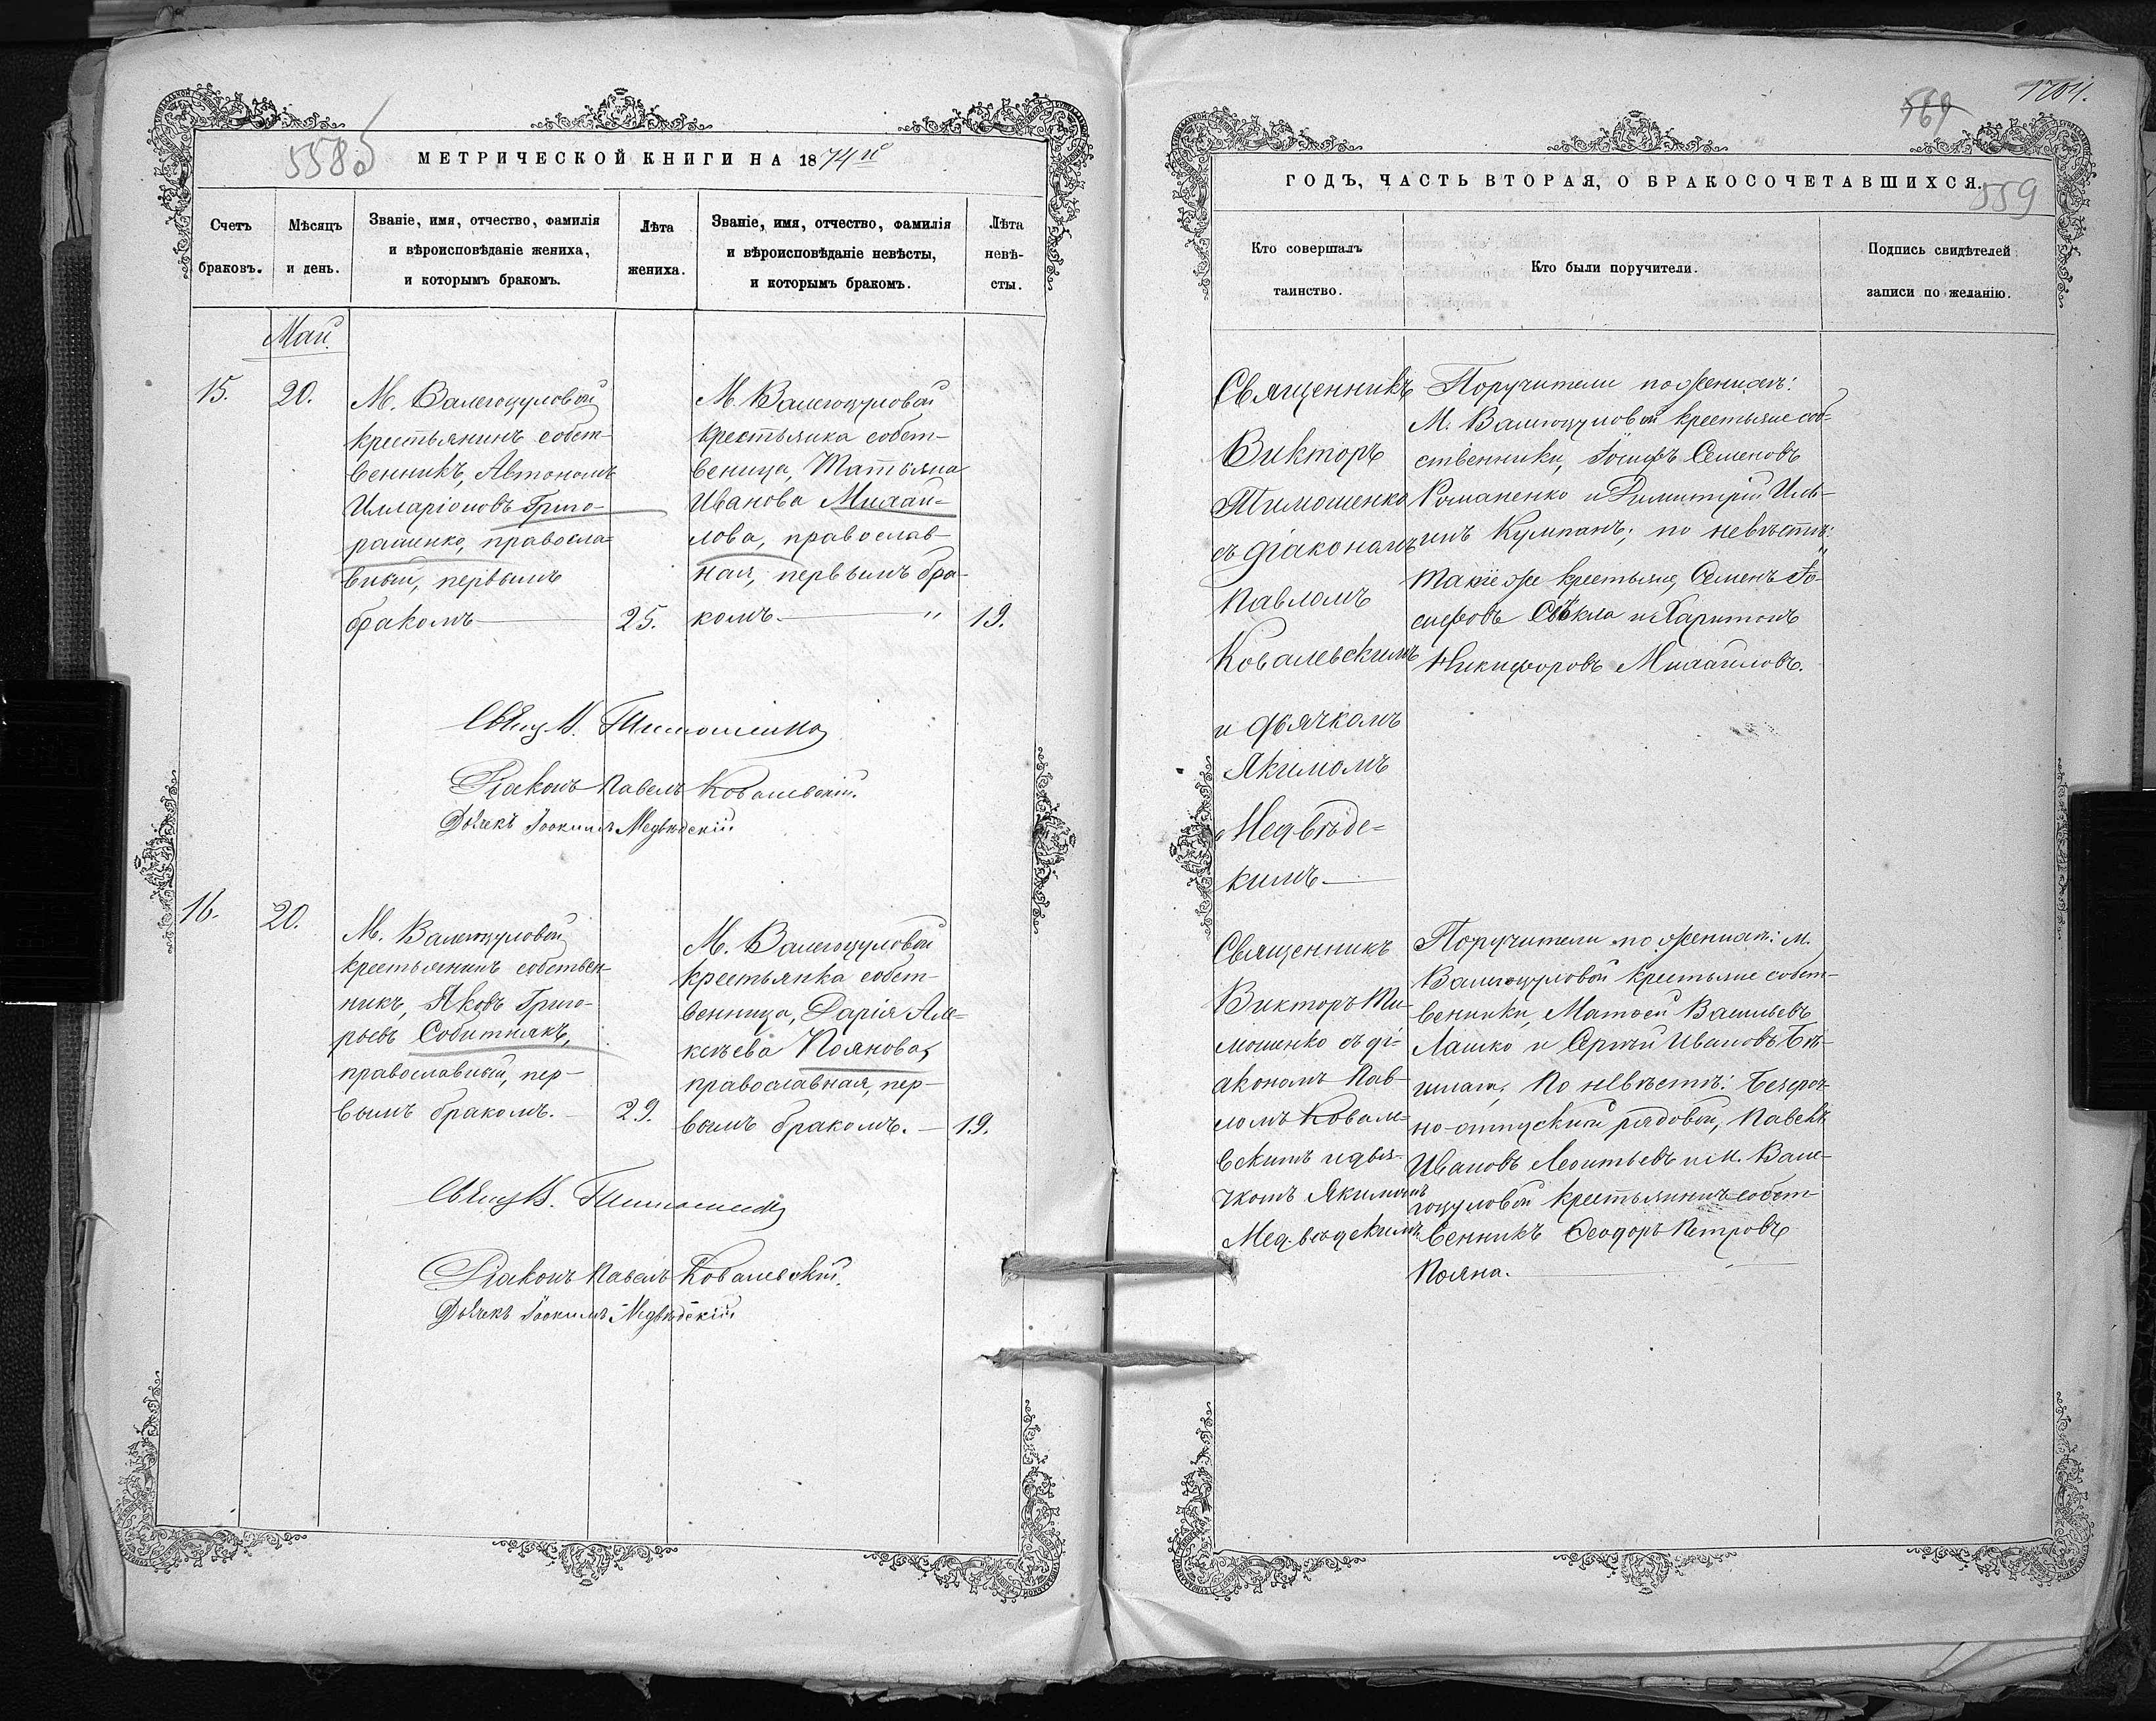 558 об
МЕТРИЧЕСКОЙ КНИГИ НА 1874й
Счетъ браковъ.
Мѣсяцъ и день.
Званіе, имя, отчество, фамилія
и вѣроисповѣданіе жениха,
и которымъ бракомъ.
Лѣта жениха.
Званіе, имя, отчество, фамилія
и вѣроисповѣданіе невѣсты,
и которымъ бракомъ.
Лѣта невѣ-
сты.
Май.
15.
20.
М. Валегоцуловой
крестьянинъ собст-
венникъ, Автономъ
Илларіоновъ Григо-
рашенко, правосла-
вный, первымъ
бракомъ
25.
М. Валегоцуловой
крестьянка собст-
веница, Татьяна
Иванова Михай-
лова, православ-
ная, первымъ бра-
комъ. "
19.
Свящ. В. Тимошенко
Діаконъ Павелъ Ковалевскій.
Дьячекъ Іоокимъ Медвѣдскій
16.
20.
М. Валегоцуловой
крестьянинъ собствен-
никъ, Яковъ Григо-
рьевъ Собитнякъ,
православный, пер-
вымъ бракомъ.
29.
М. Валегоцуловой
крестьянка собст-
венница, Дарія Але-
ксѣева Поянова,
православная, пер-
вымъ бракомъ.
19.
Свящ. В. Тимошенко
Діаконъ Павелъ Ковалевскій.
Дьячекъ Іоокимъ Медвѣдскій
569
1704.
559
ГОДЪ, ЧАСТЬ ВТОРАЯ, О БРАКОСОЧЕТАВШИХСЯ.
Кто совершалъ
таинство.
Кто были поручители.
Подпись свидѣтелей
записи по желанію.
Священникъ
Викторъ
Тимошенко
съ діакономъ
Павломъ
Ковалевскимъ
и дьячкомъ
Якимомъ
Медвѣде-
кимъ
Поручители по женихѣ:
М. Валегоцуловой крестьяне соб-
ственники, Іосифъ Семеновъ
Романенко и Димитрій Иль-
инъ Кулпанъ; по невѣстѣ:
такіе же крестьяне, Семенъ Іо-
сифовъ Свѣкла и Харитонъ
Никифоровъ Михайловъ.
Священникъ
Викторъ Ти-
мошенко съ ді-
акономъ Пав-
ломъ Ковале-
вскимъ и дья-
чкомъ Якимомъ
Медвѣдскимъ
Поручители по женихѣ: М.
Валегоцуловой крестьяне собст-
венники, Матвей Васильевъ
Лашко и Сергѣй Ивановъ
По невѣстѣ: Безсроч-
но-отпускной рядовой, Павелъ
Ивановъ Леонтьевъ и М. Вале-
гоцуловой крестьянинъ собст-
венникъ Феодоръ Петровъ
Пояна.